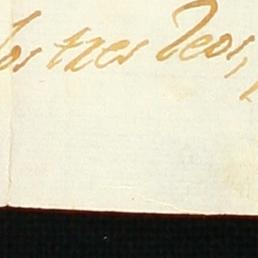 los tres Deos,